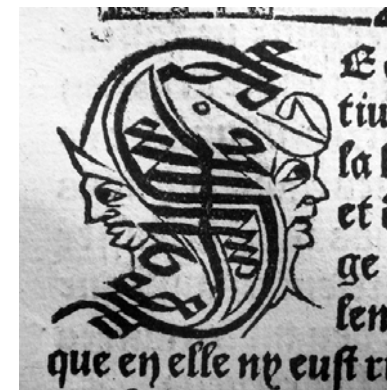 S
E
tiu
la
et
ge
len
que en elle ny eust